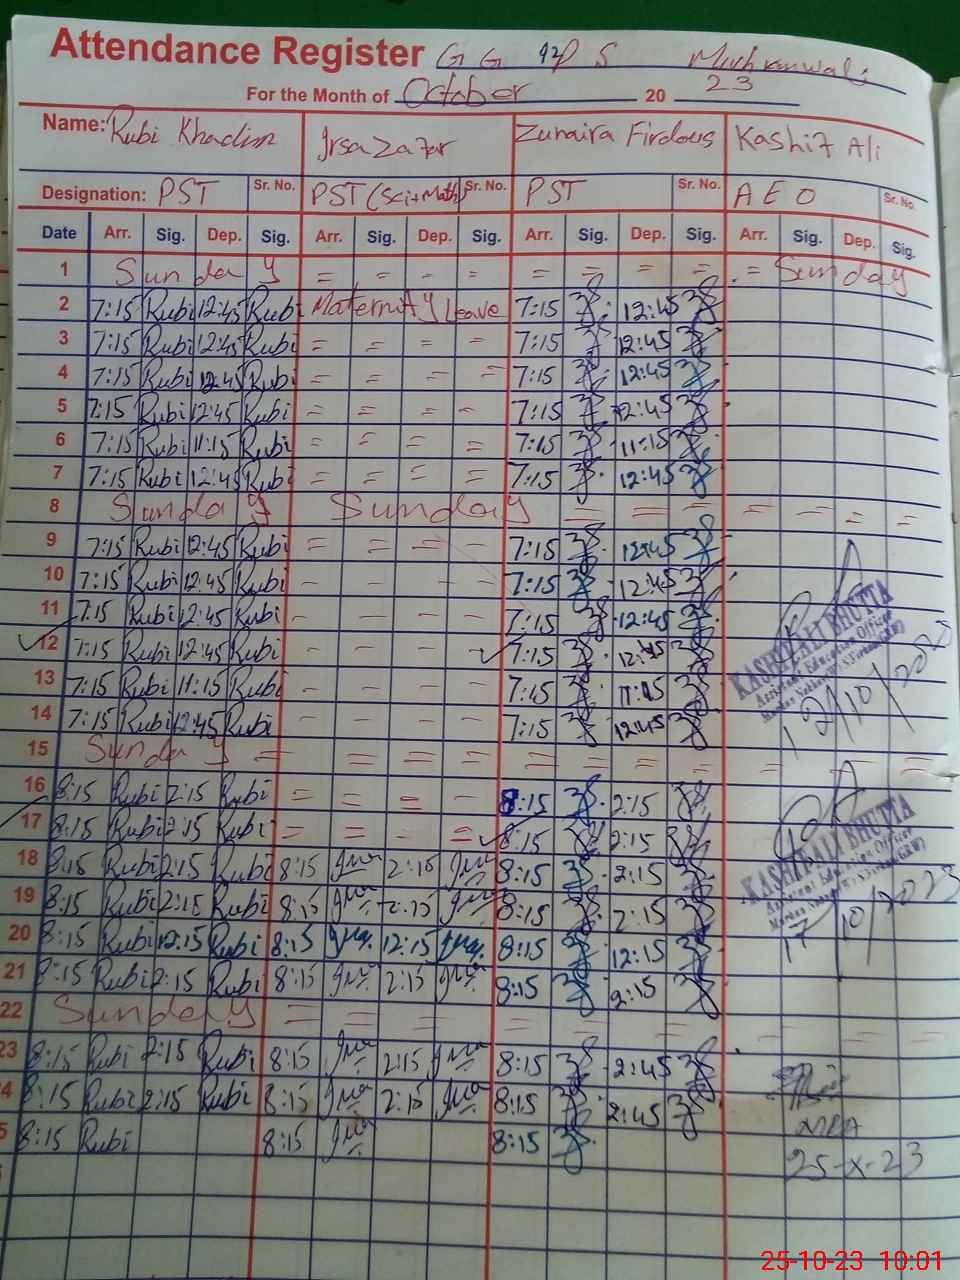 Attendance Register G G P S
For the Month of October 20 23
Name: Rubi Khadim Irsa Zafar Zunaira Firdous Kashif Ali
Designation: PST Sr. No. PST (Sci+Math) Sr. No. PST Sr. No. AEO Sr. No.
Date Arr. Sig. Dep. Sig. Arr. Sig. Dep. Sig. Arr. Sig. Dep. Sig. Arr. Sig. Dep. Sig.
1 Sunday = = = = = = = = = Sunday
2 7:15 Rubi 12:45 Rubi Maternity Leave 7:15 12:45
3 7:15 Rubi 12:45 Rubi = = = = 7:15 12:45
4 7:15 Rubi 12:45 Rubi = = = = 7:15 12:45
5 7:15 Rubi 12:45 Rubi = = = = 7:15 12:45
6 7:15 Rubi 11:15 Rubi = = = = 7:15 11:15
7 7:15 Rubi 12:45 Rubi = = = = 7:15 12:45
8 Sunday Sunday = = = = = = = =
9 7:15 Rubi 12:45 Rubi = = = = 7:15 12:45
10 7:15 Rubi 12:45 Rubi - - - - 7:15 12:45
11 7:15 Rubi 12:45 Rubi - - - - 7:15 12:45
12 7:15 Rubi 12:45 Rubi - - - 7:15 12:45
13 7:15 Rubi 11:15 Rubi - - - - 7:15 11:15
14 7:15 Rubi 12:45 Rubi - - - - 7:15 12:45
KASHIF ALI BHUTTA
Assistant Education Officer
15 Sunday = = = = = = = = = = = =
16 8:15 Rubi 2:15 Rubi = = = - 8:15 2:15
17 8:15 Rubi 2:15 Rubi = = = = 8:15 2:15
18 8:15 Rubi 2:15 Rubi 8:15 2:15 8:15 2:15
19 8:15 Rubi 2:15 Rubi 8:15 2:15 8:15 2:15
KASHIF ALI BHUTTA
Assistant Education Officer
17/10/2023
20 8:15 Rubi 12:15 Rubi 8:15 12:15 8:15 12:15
21 8:15 Rubi 2:15 Rubi 8:15 2:15 8:15 2:15
22 Sunday = = = = = = = = - - - -
23 8:15 Rubi 2:15 Rubi 8:15 2:15 8:15 2:45
4 8:15 Rubi 2:15 Rubi 8:15 2:15 8:15 2:45
5 8:15 Rubi 8:15 8:15
MEA
25-X-23
25-10-23 10:01